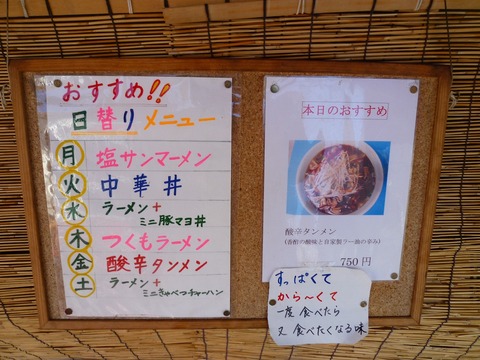 おすすめ!!
日替りメニュー
月 塩サンマーメン
火 中華丼
水 ラーメン+
ミニ豚マヨ丼
木 つくもラーメン
金 酸辛タンメン
土 ラーメン+
ミニきゃべつチャーハン
本日のおすすめ
酸辛タンメン
(香酢の酸味と自家製ラー油の辛み)
750円
すっぱくて
から〜くて
一度 食べたら
又 食べたくなる味